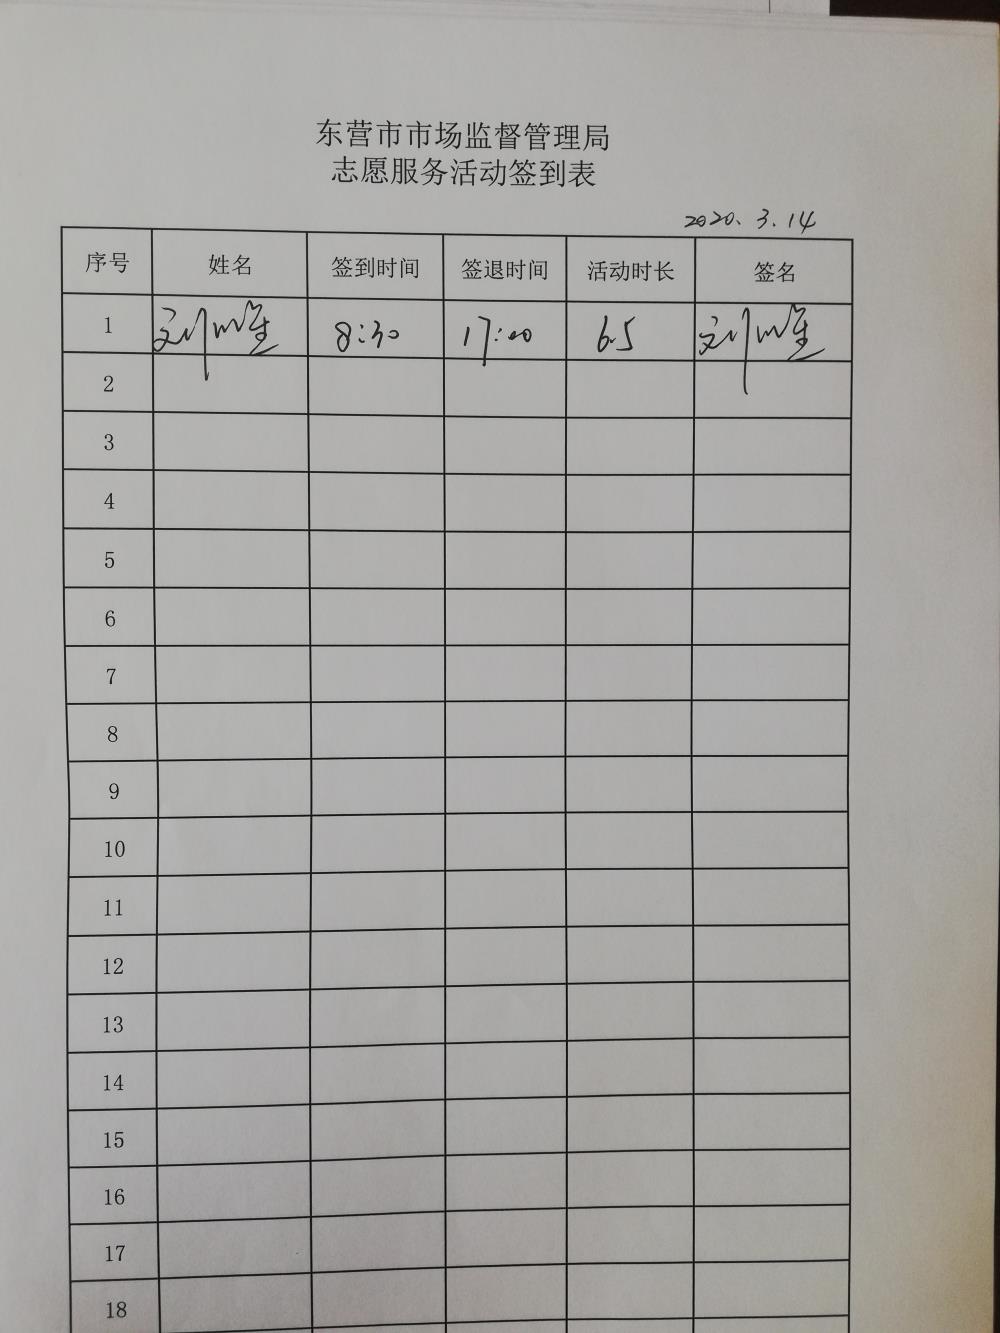 东营市市场监督管理局
志愿服务活动签到表
2020.3.14
序号 姓名 签到时间 签退时间 活动时长 签名
1 刘 8:30 17:00 6.5 刘
2
3
4
5
6
7
8
9
10
11
12
13
14
15
16
17
18